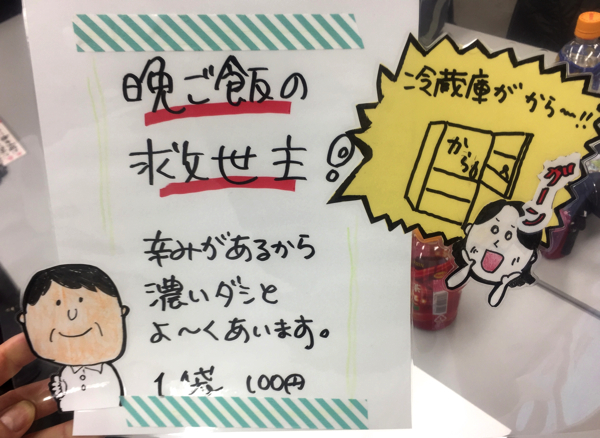 晩ご飯の
救世主!
辛みがあるから
濃いダシと
よ〜くあいます。
1袋 100円
冷蔵庫がから〜!!
から
ガーン